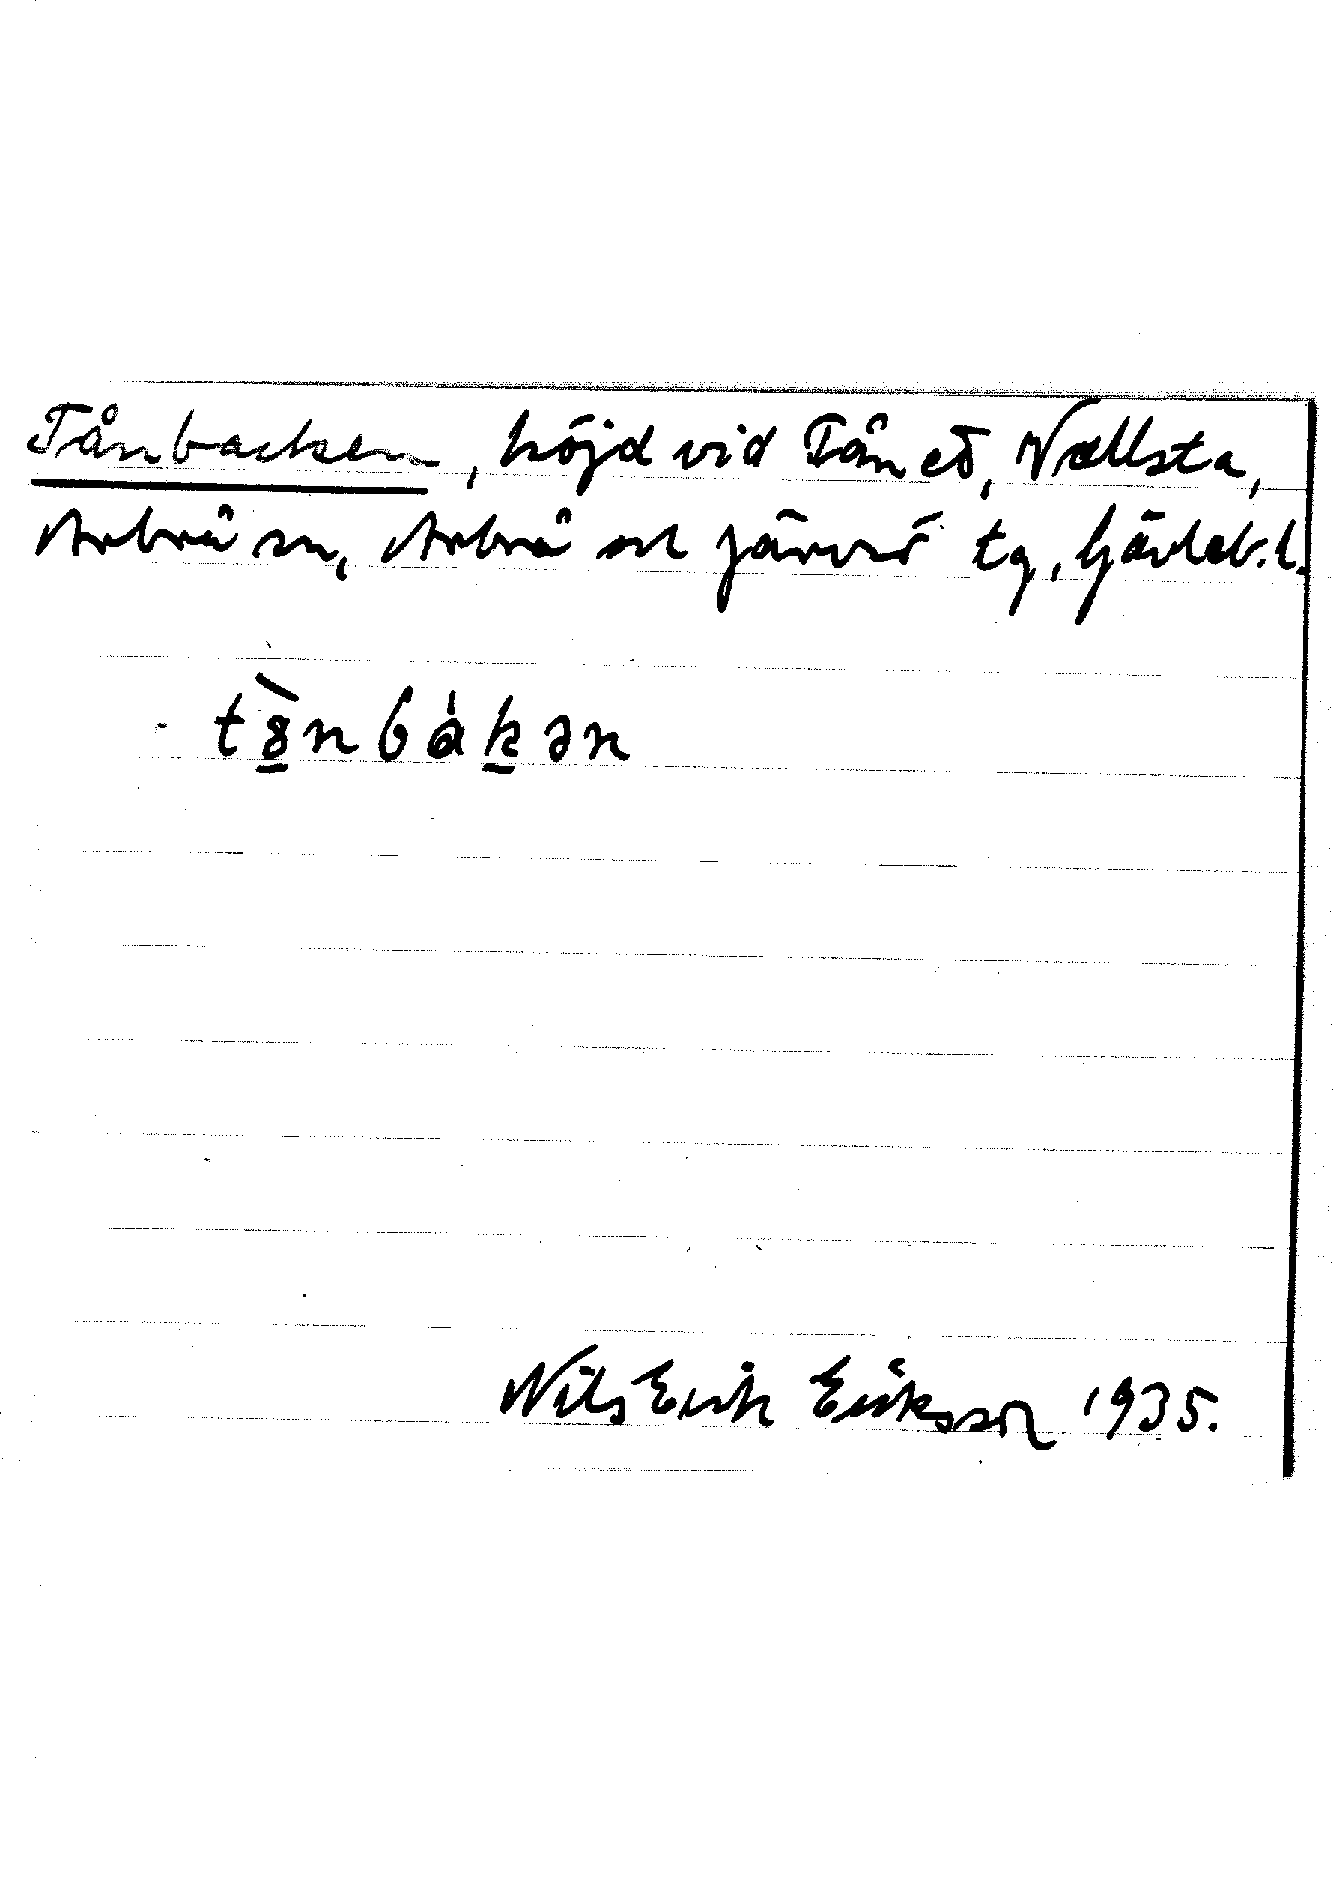 Tånbacken, höjd vid Tånet, Vallsta,
Arbrå sn, Arbrå och Järvsö tg, Gävleb. l.
tȣ̀nbàkən
Nils Erik Eriksson 1935.